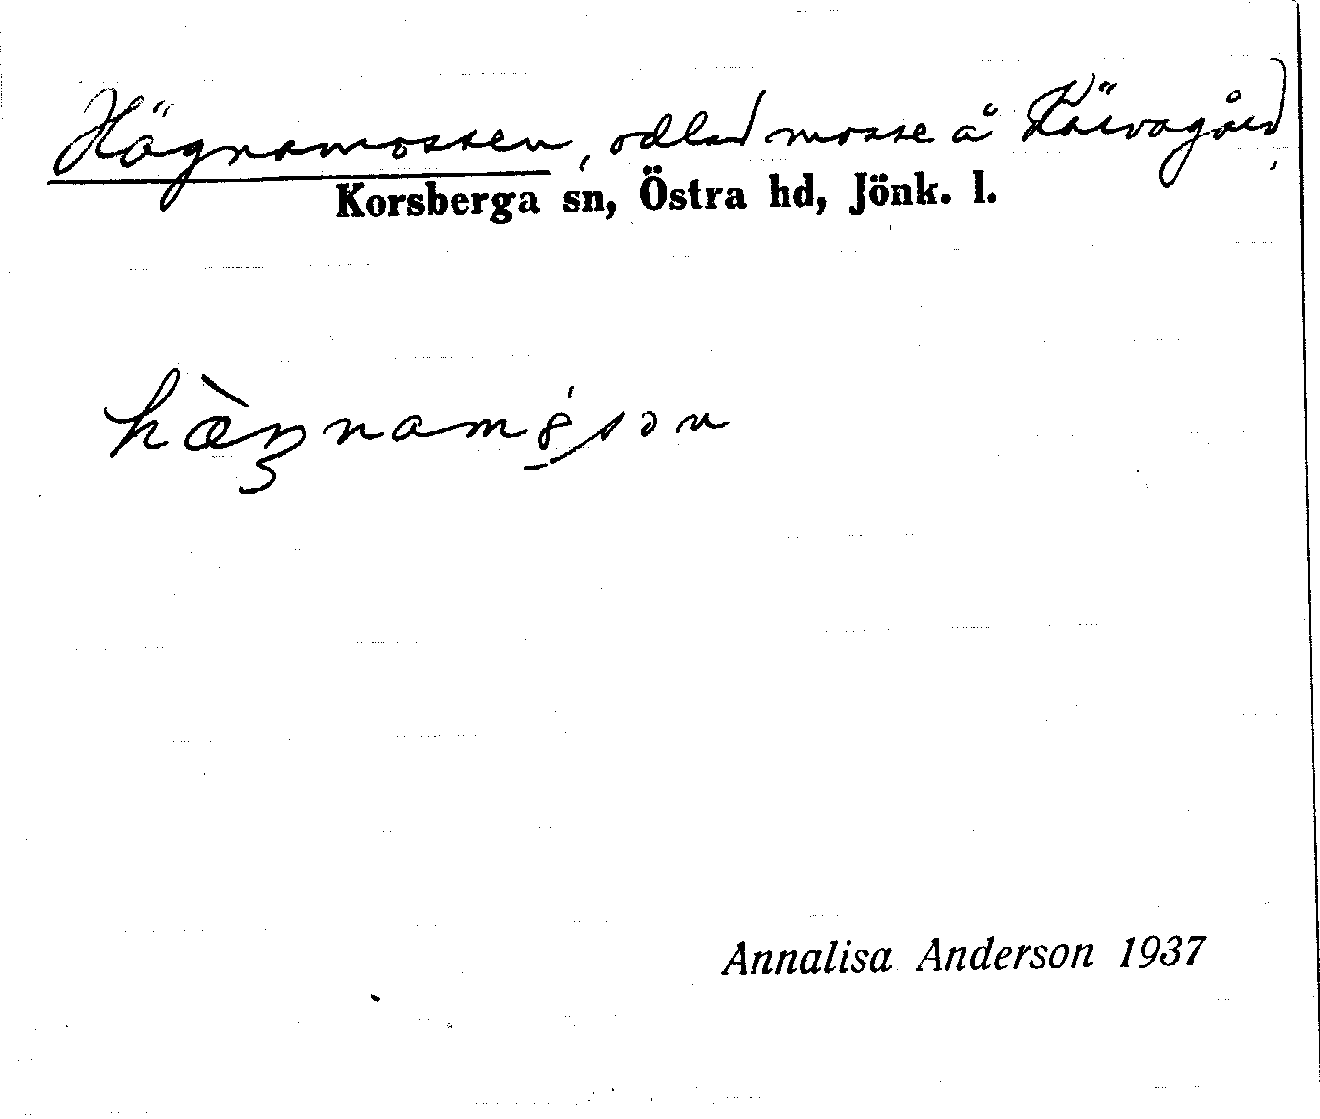 Hägnamossen, odlad mosse å Kärvagård,
Korsberga sn, Östra hd, Jönk. l.
Annalisa Anderson 1937